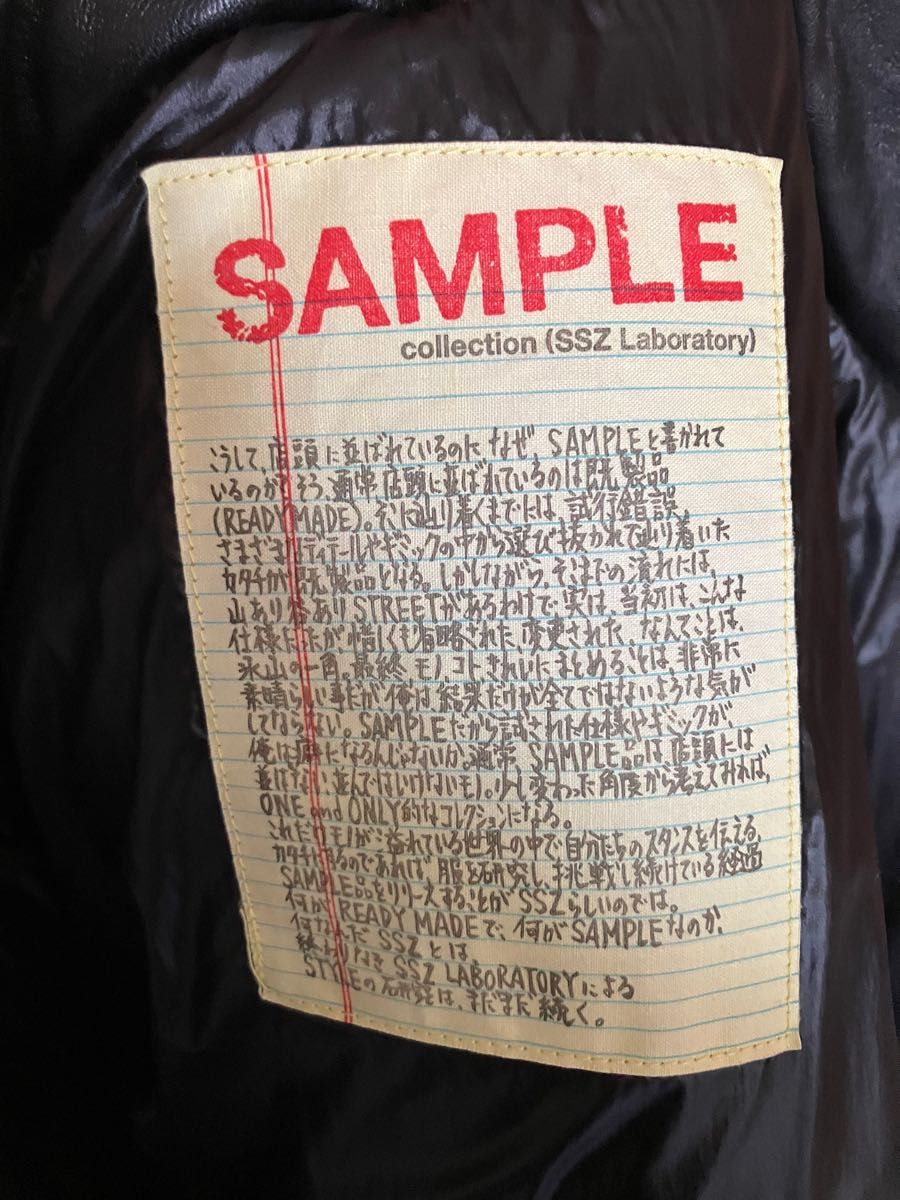 SAMPLE
collection (SSZ Laboratory)
こうして、店頭に並ばれているのに、なぜ、SAMPLEと書かれて
いるのか?そう、通常、店頭に並ばれているのは既製品
(READY MADE)。そこに辿り着くまでには、試行錯誤、
さまざまなディテールやギミックの中から選び抜かれて辿り着いた
カタチが既製品となる。しかしながら、そこまでの流れには、
山あり谷ありSTREETがあるわけで、実は、当初は、こんな
仕様だったが、惜しくも省略された、変更された、なんてことは、
氷山の一角。最終、モノ、コトきれいにまとめることは、非常に
素晴らしい事だが、俺は、結果だけが全てではないような気が
してならない。SAMPLEだから試された仕様やギミックが、
俺は
になるんじゃないか。通常、SAMPLE品は、店頭には
並ばない、並んではいけないモノ。少し変わった角度から考えてみれば、
ONE and ONLY的なコレクションになる。
これだけモノが溢れている世界の中で、自分たちのスタンスを伝える、
カタチがあるのであれば、服を研究し、挑戦し続けている経過
SAMPLE品をリリースすることがSSZらしいのでは。
何が、READY MADEで、何がSAMPLEなのか、
何なんだ SSZとは。
終わりなきSSZ LABORATORYによる
STYLEの研究は、まだまだ続く。